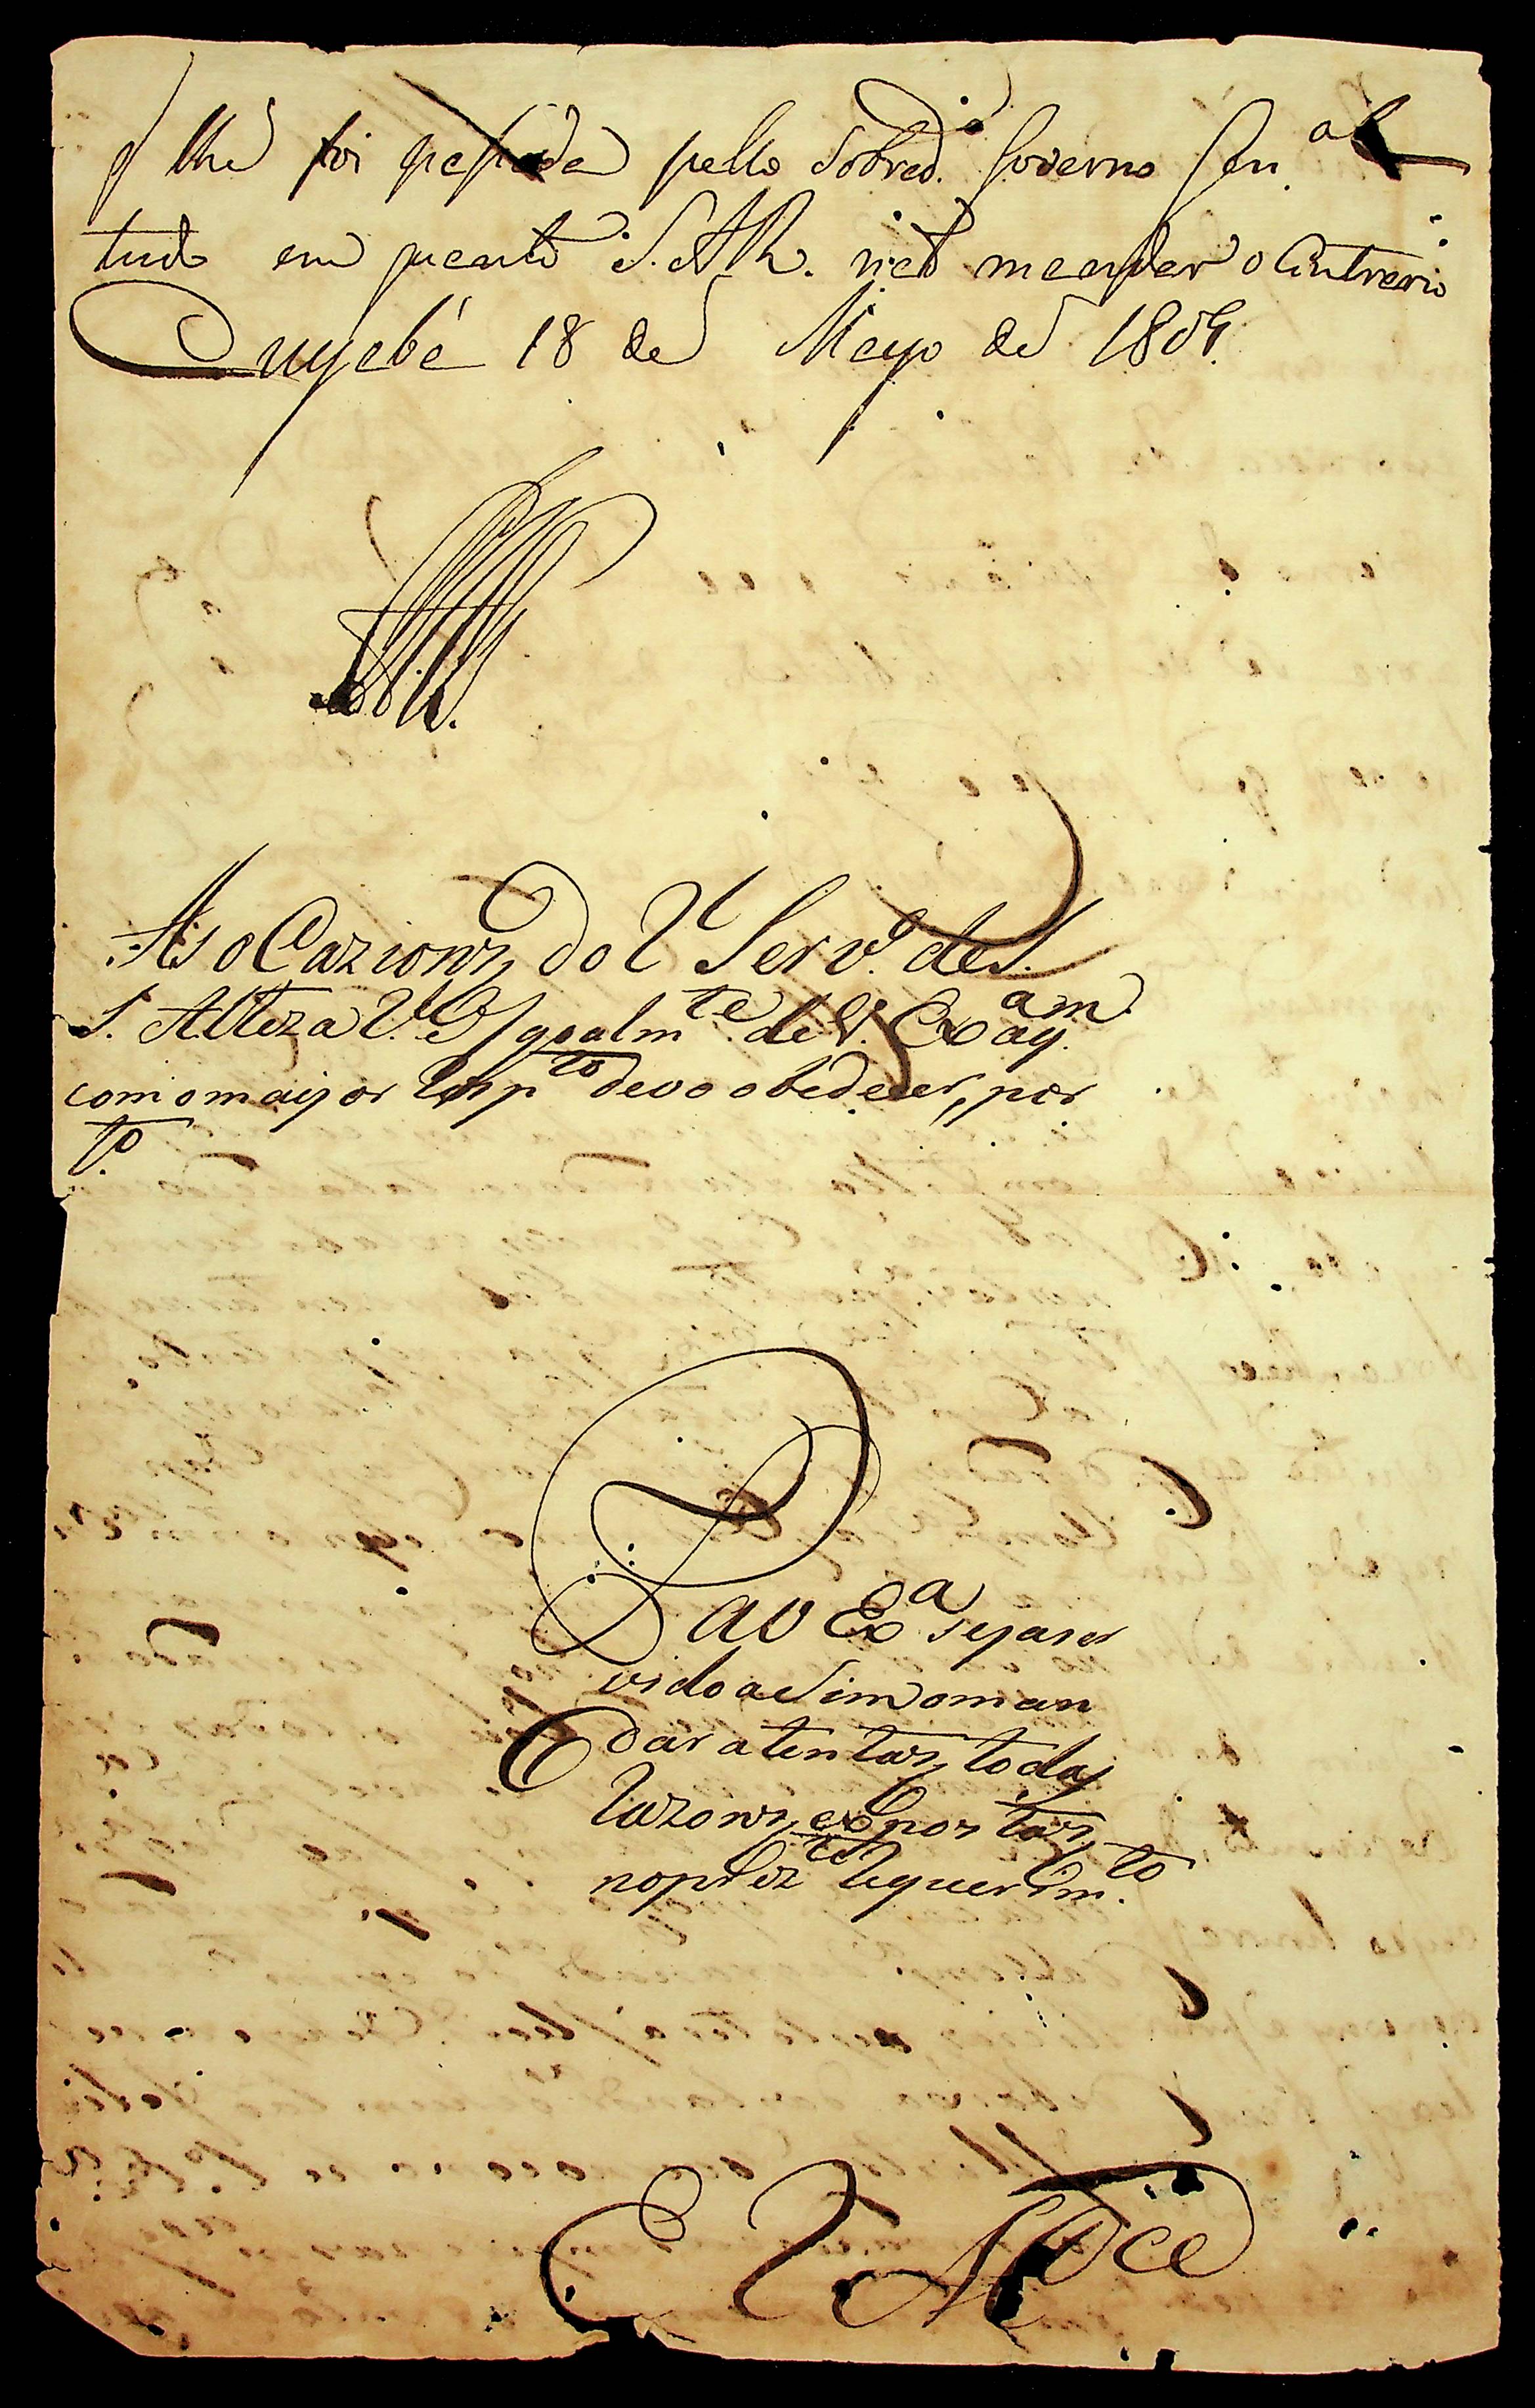 q lhe foi passada pello Sobred.º Governo Gen.al
tudo em quanto S.A.R. não mandar o Contrario
Cuyabá 18 de Mayo de 1809.
As oCazions do R Serv.º de S.
S. Alteza R. e Igoalm.te de V. Ex.a
com o mayor Resp.to devo obedecer, por
t.º
P a V Ex.a seja ser
vido a Sim o man
dar atentas, todas
Razons, expostas,
no prez.te Requerim.to
E R Mce